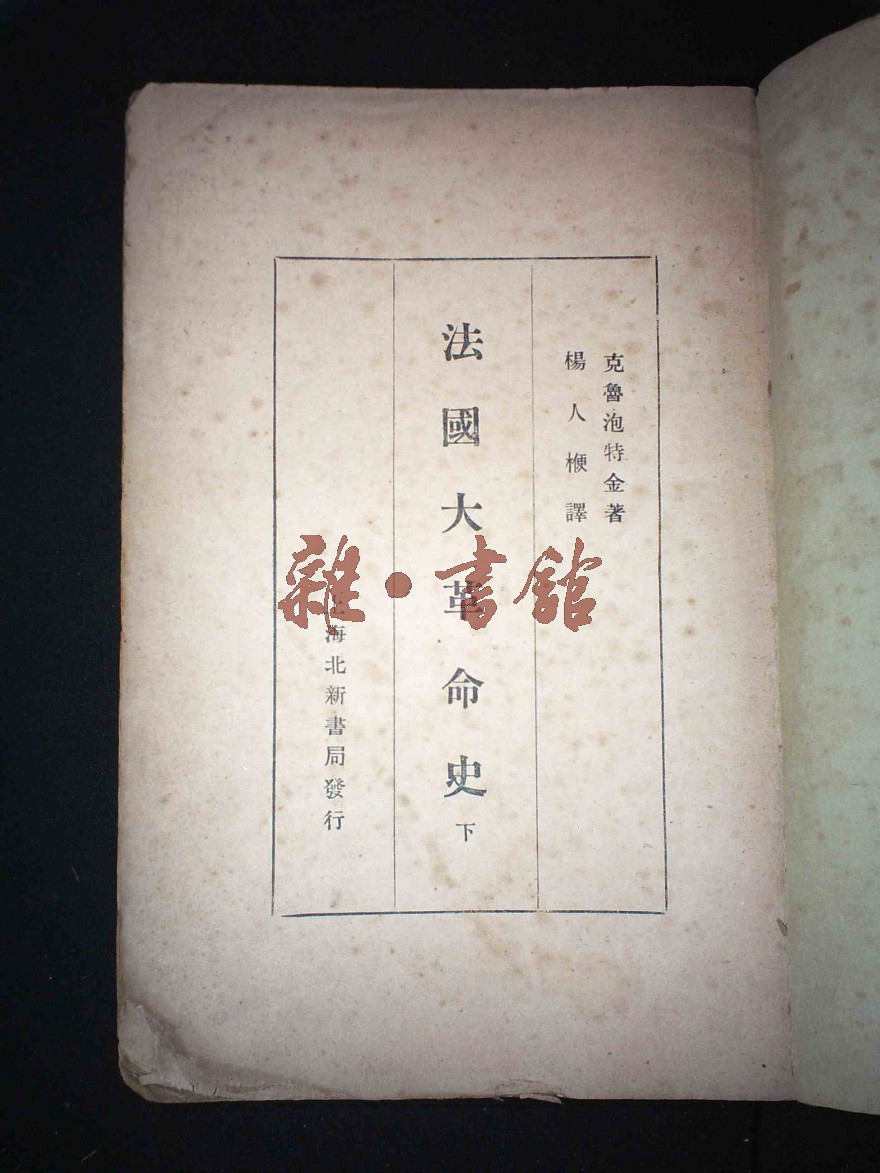 克魯泡特金著
楊人楩譯
法國大革命史 下
上海北新書局發行
雜·書館